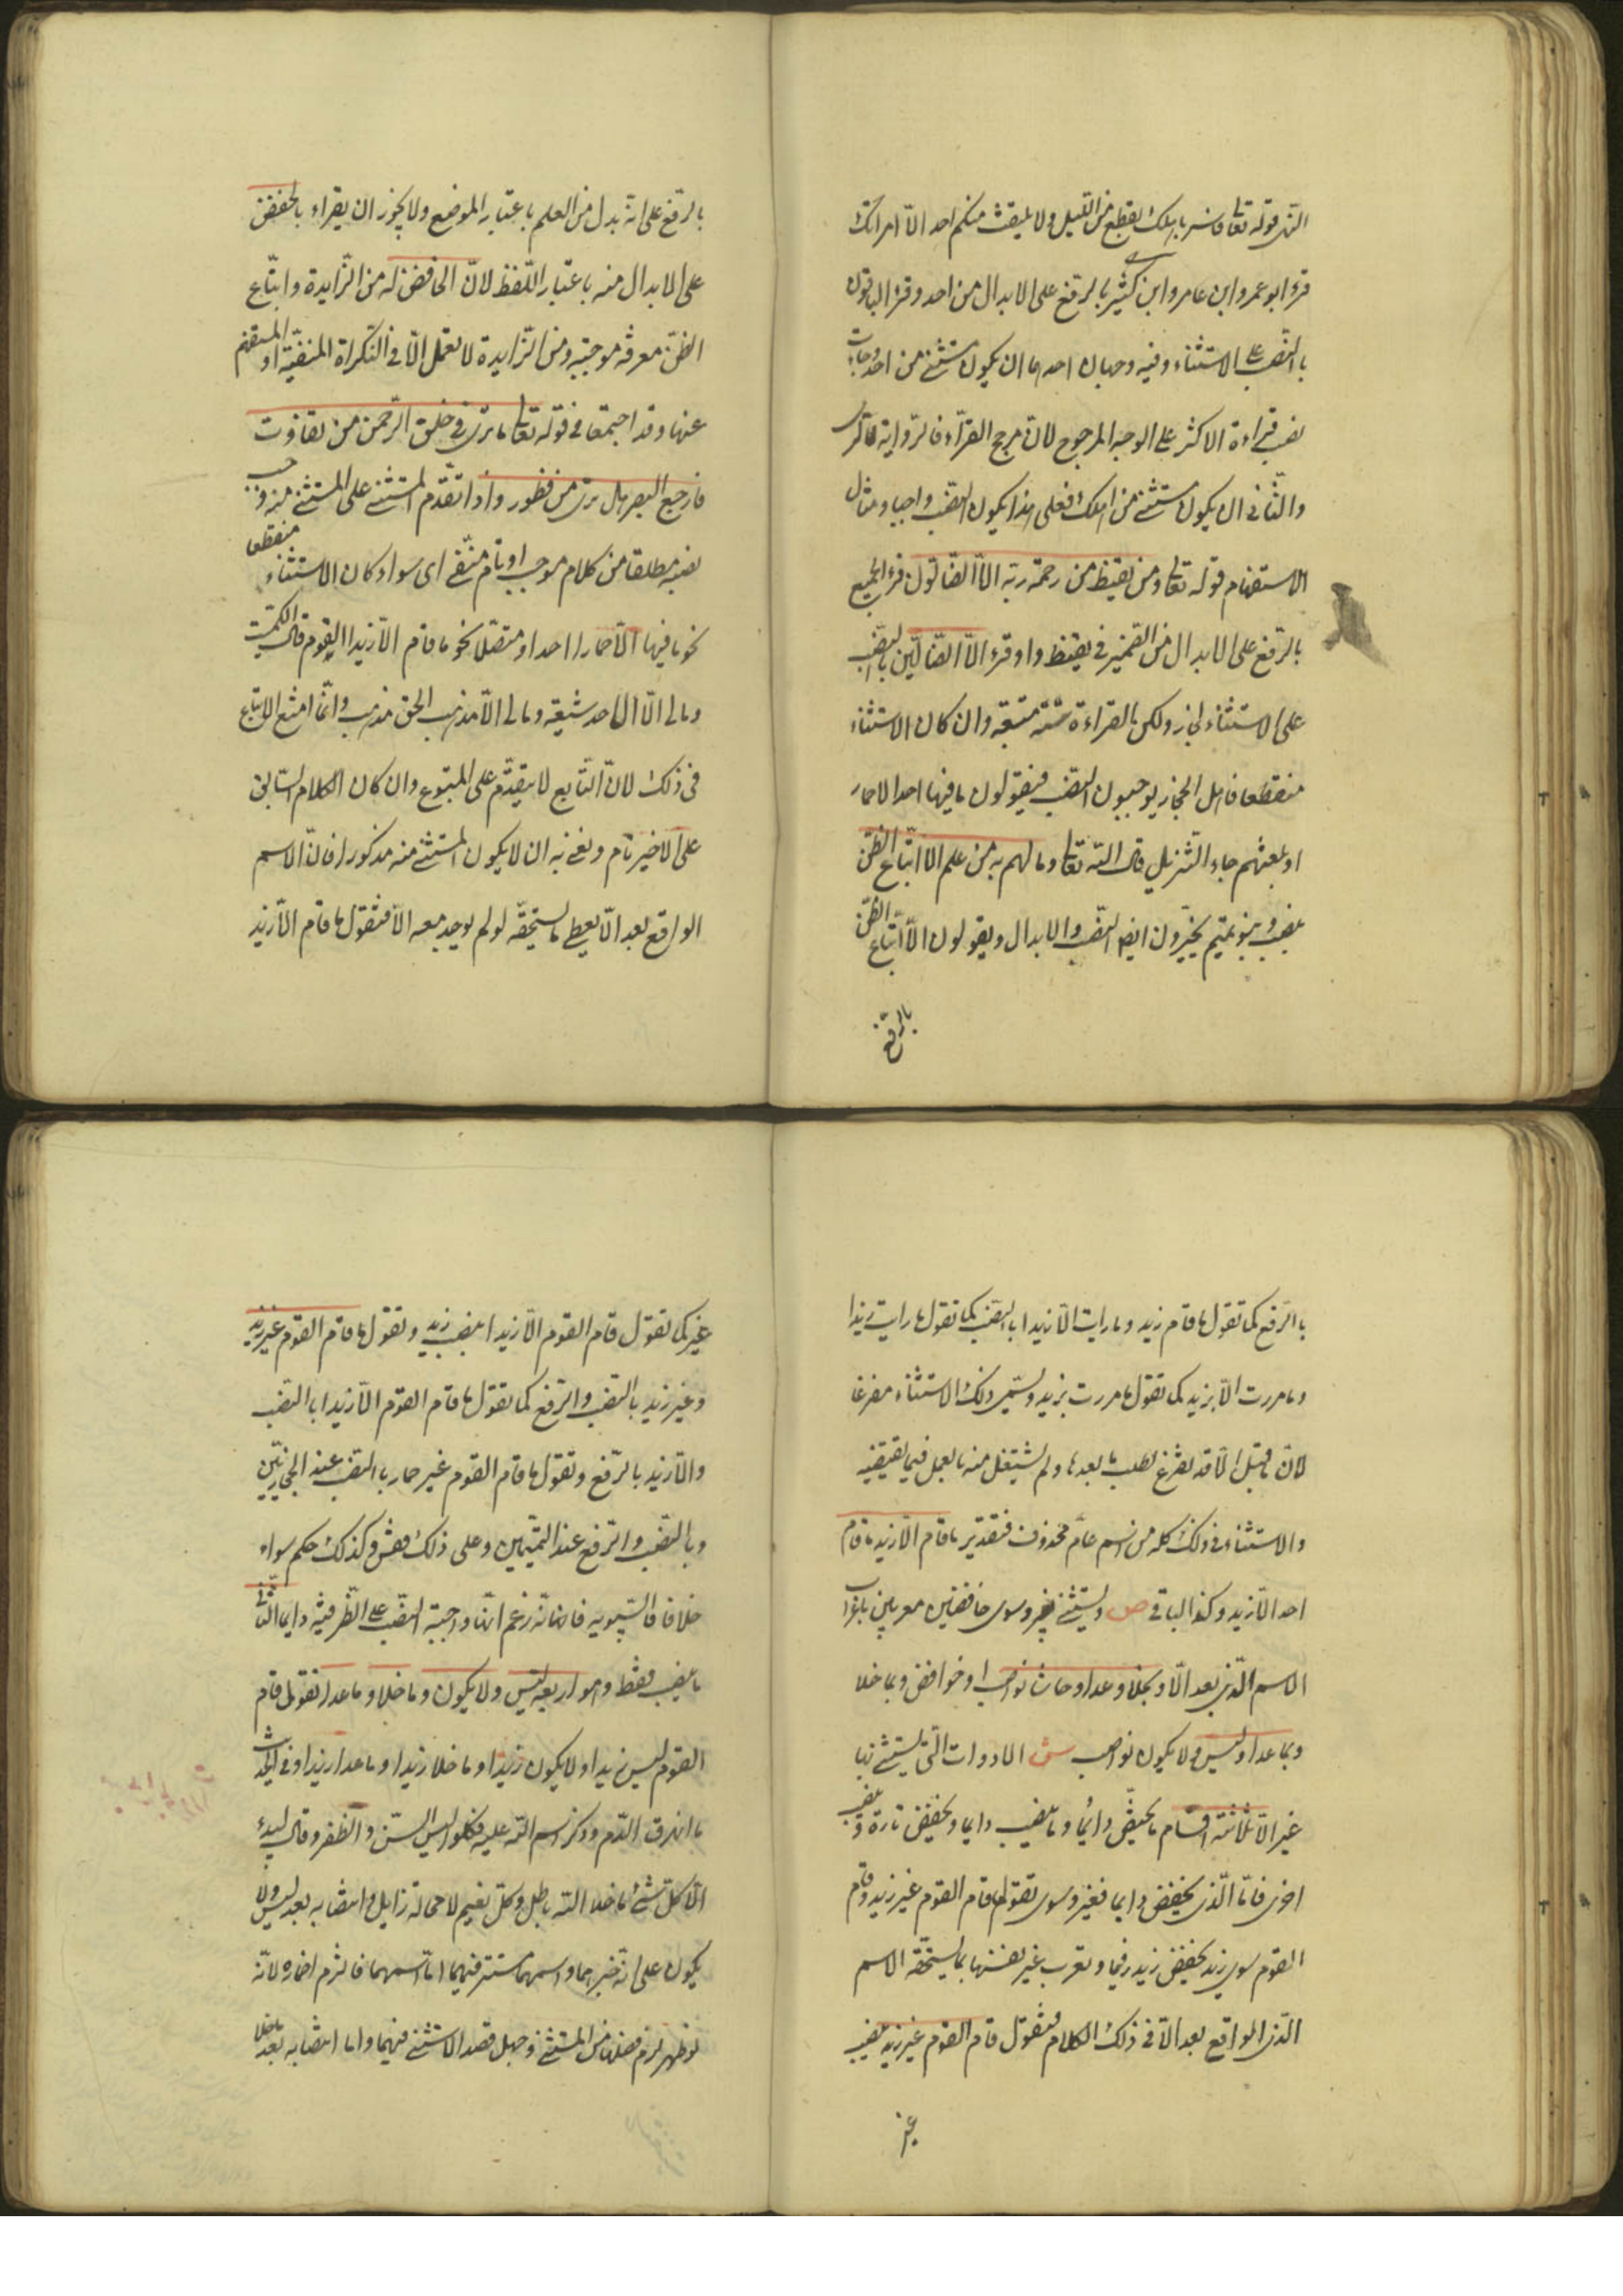 النهى قوله تعالى فاسر باهلك بقطع من الليل ولا يلتفت منكم احد الا امراتك
قرء ابو عمرو وابن عامر وابن كثير بالرفع على الابدال من احد وقرء الباقون
بالنصب على الاستثناء وفيه وجهان احدهما ان يكون مستثنى من احد وجاءت
نصب قراءة الاكثر على الوجه المرجوح لان مرجع القراء فالرواية لا الراى
والثانى ان يكون مستثنى من اهلك فعلى هذا يكون النصب واجبا ومثال
الاستفهام قوله تعالى ومن يقنط من رحمة ربه الا الضالون قرء الجميع
بالرفع على الابدال من الضمير فى يقنط ولو قرء الا الضالين بالنصب
على الاستثناء لجاز ولكن القراءة سنة متبعة وان كان الاستثناء
منقطعا فاهل الحجاز يوجبون النصب فيقولون ما فيها احد الا حمار
او بلغتهم جاء التنزيل قال الله تعالى وما لهم به من علم الا اتباع الظن
بنصب وبنو تميم يخيرون ايضا النصب والابدال ويقولون الا اتباع الظن
بالرفع
بالرفع على انه بدل من العلم باعتبار الموضع ولا يجوز ان يقراء بالخفض
على الابدال منه باعتبار اللفظ لان الخافض له من الزايدة واتباع
الظن معرفه موجبه ومن الزايدة لا تعمل الا فى النكراة المنفية او المستفهم
عنها وقد اجتمعا فى قوله تعالى ما ترى فى خلق الرحمن من تفاوت
فارجع البصر هل ترى من فطور واذا تقدم المستثنى على المستثنى منه وجب
نصبه مطلقا من كلام موجب او تام منفى اى سواء كان الاستثناء منقطعا
نحو ما فيها الا حمارا احد او متصلا نحو ما قام الا زيدا القوم قال الكميت
ومالى الا ال احمد شيعة ومالى الا مذهب الحق مذهب وانما امتنع الاتباع
فى ذلك لان التابع لا يتقدم على المتبوع وان كان الكلام السابق
على الا غير تام ونعنى به ان لا يكون المستثنى منه مذكورا فان الاسم
الواقع بعد الا يعطى ما يستحقه لو لم يوجد معه الا فتقول ما قام الا زيد
بالرفع كما تقول ما قام زيد وما رايت الا زيدا بالنصب كما تقول ما رايت زيدا
وما مررت الا بزيد كما تقول ما مررت بزيد ويسمى ذلك الاستثناء مفرغا
لان ما قبل الا قد تفرغ لطلب ما بعدها ولم يشتغل منه بالعمل فيما يقتضيه
والاستثناء فى ذلك كله من اسم عام محذوف فتقدير ما قام الا زيد ما قام
احد الا زيد وكذا الباقى ص ويستثنى بغير وسوى خافضين معربين باعراب
الاسم الذى بعد الا وبخلا وعدا وحاشا نواصب او خوافض وبما خلا
وبما عدا وليس ولا يكون نواصب ش الادوات التى يستثنى بها
غير الا ثلاثة اقسام ما يخفض دائما وما ينصب دايما وما يخفض تارة وينصب
اخرى فاما الذى يخفض دايما فغير وسوى تقول ما قام القوم غير زيد وقام
القوم سوى زيد بخفض زيد فيهما وتعرب غير نفسها بما يستحقه الاسم
الذى الواقع بعد الا فى ذلك الكلام فتقول قام القوم غير زيد بنصب
غير
غير كما تقول قام القوم الا زيدا بنصب زيد وتقول ما قام القوم غير زيد
وغير زيد بالنصب والرفع كما تقول ما قام القوم الا زيدا بالنصب
والا زيد بالرفع وتقول ما قام القوم غير حمار بالنصب عند الحجازيين
وبالنصب والرفع عند التميميين وعلى ذلك فقس وكذلك حكم سواء
خلافا لسيبويه فانه زعم انها واجبة النصب على الظرفية دايما الثانى
ما ينصب فقط وهو اربعة ليس ولا يكون وما خلا وما عدا تقول قام
القوم ليس زيدا ولا يكون زيدا وما خلا زيدا وما عدا زيدا وفى الحديث
ما انهرق الدم وذكر اسم الله عليه فكلوا ليس السن والظفر وقال لبيد
الا كل شئ ما خلا الله باطل وكل نعيم لا محالة زايل وانتصابه بعد ليس ولا
يكون على انه خبرهما واسمهما مستتر فيهما اما اسمهما فالتزم اضماره لانه
لو ظهر لزم فصلهما من المستثنى وجهل قصد الاستثنى فيهما واما انتصابه بعد ما خلا